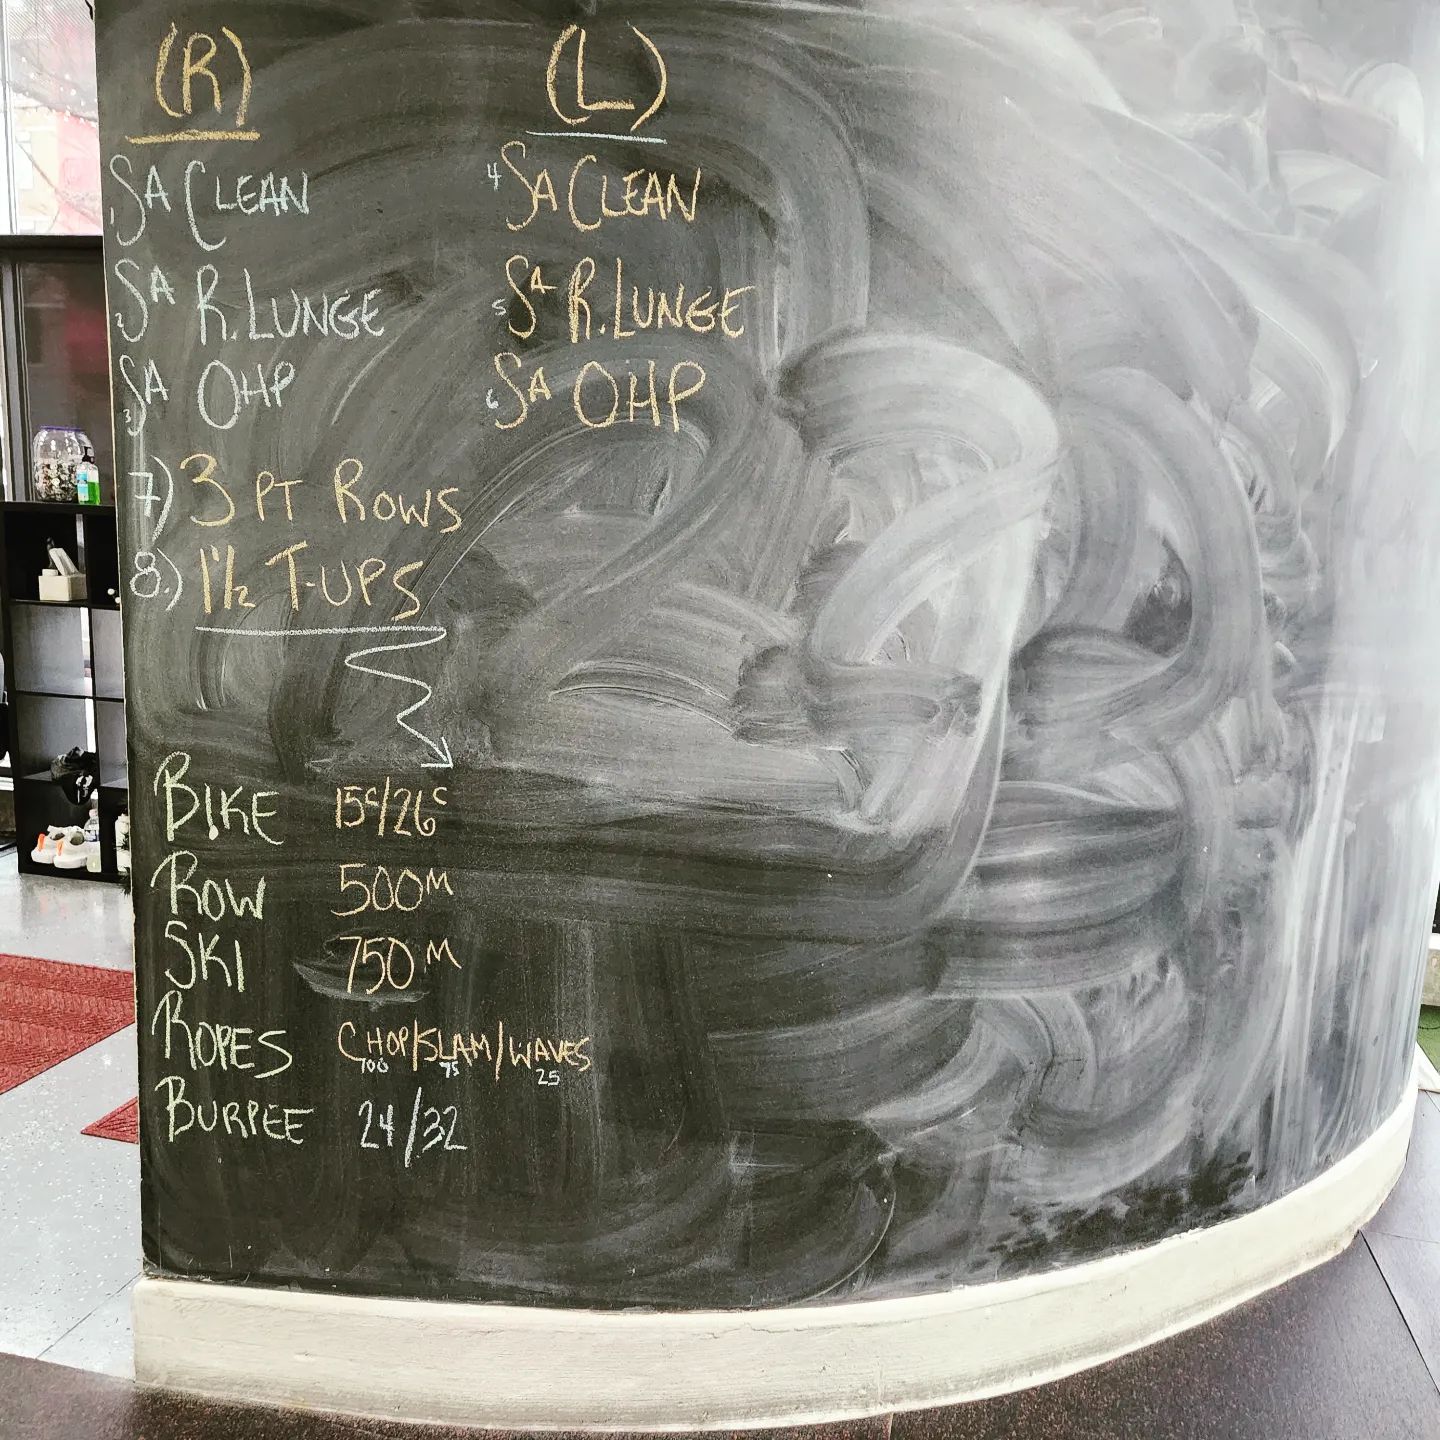 (R) (L)
1 SA CLEAN 4 SA CLEAN
2 SA R. LUNGE 5 SA R. LUNGE
3 SA OHP 6 SA OHP
7) 3 PT ROWS
8.) 1 1/2 T-UPS
BIKE 15c/26c
ROW 500M
SKI 750M
ROPES CHOP/SLAM/WAVES
100 75 25
BURPEE 24/32